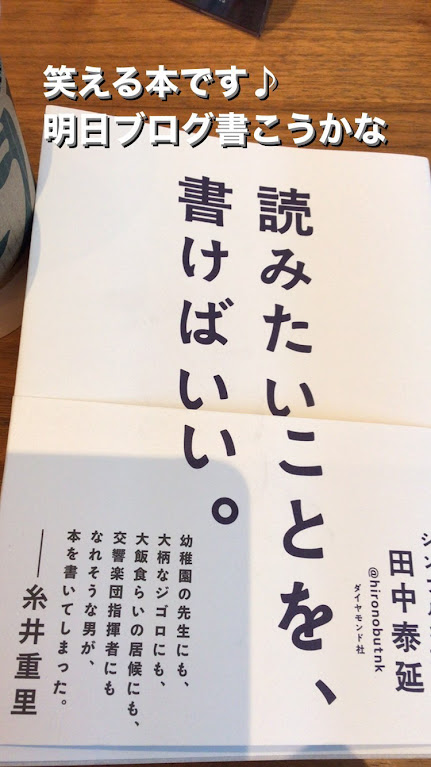 笑える本です♪
明日ブログ書こうかな
読みたいことを、
書けばいい。
田中泰延
@hironobutnk
ダイヤモンド社
幼稚園の先生にも、
大柄なジゴロにも、
大飯食らいの居候にも、
交響楽団指揮者にも
なれそうな男が、
本を書いてしまった。
──糸井重里